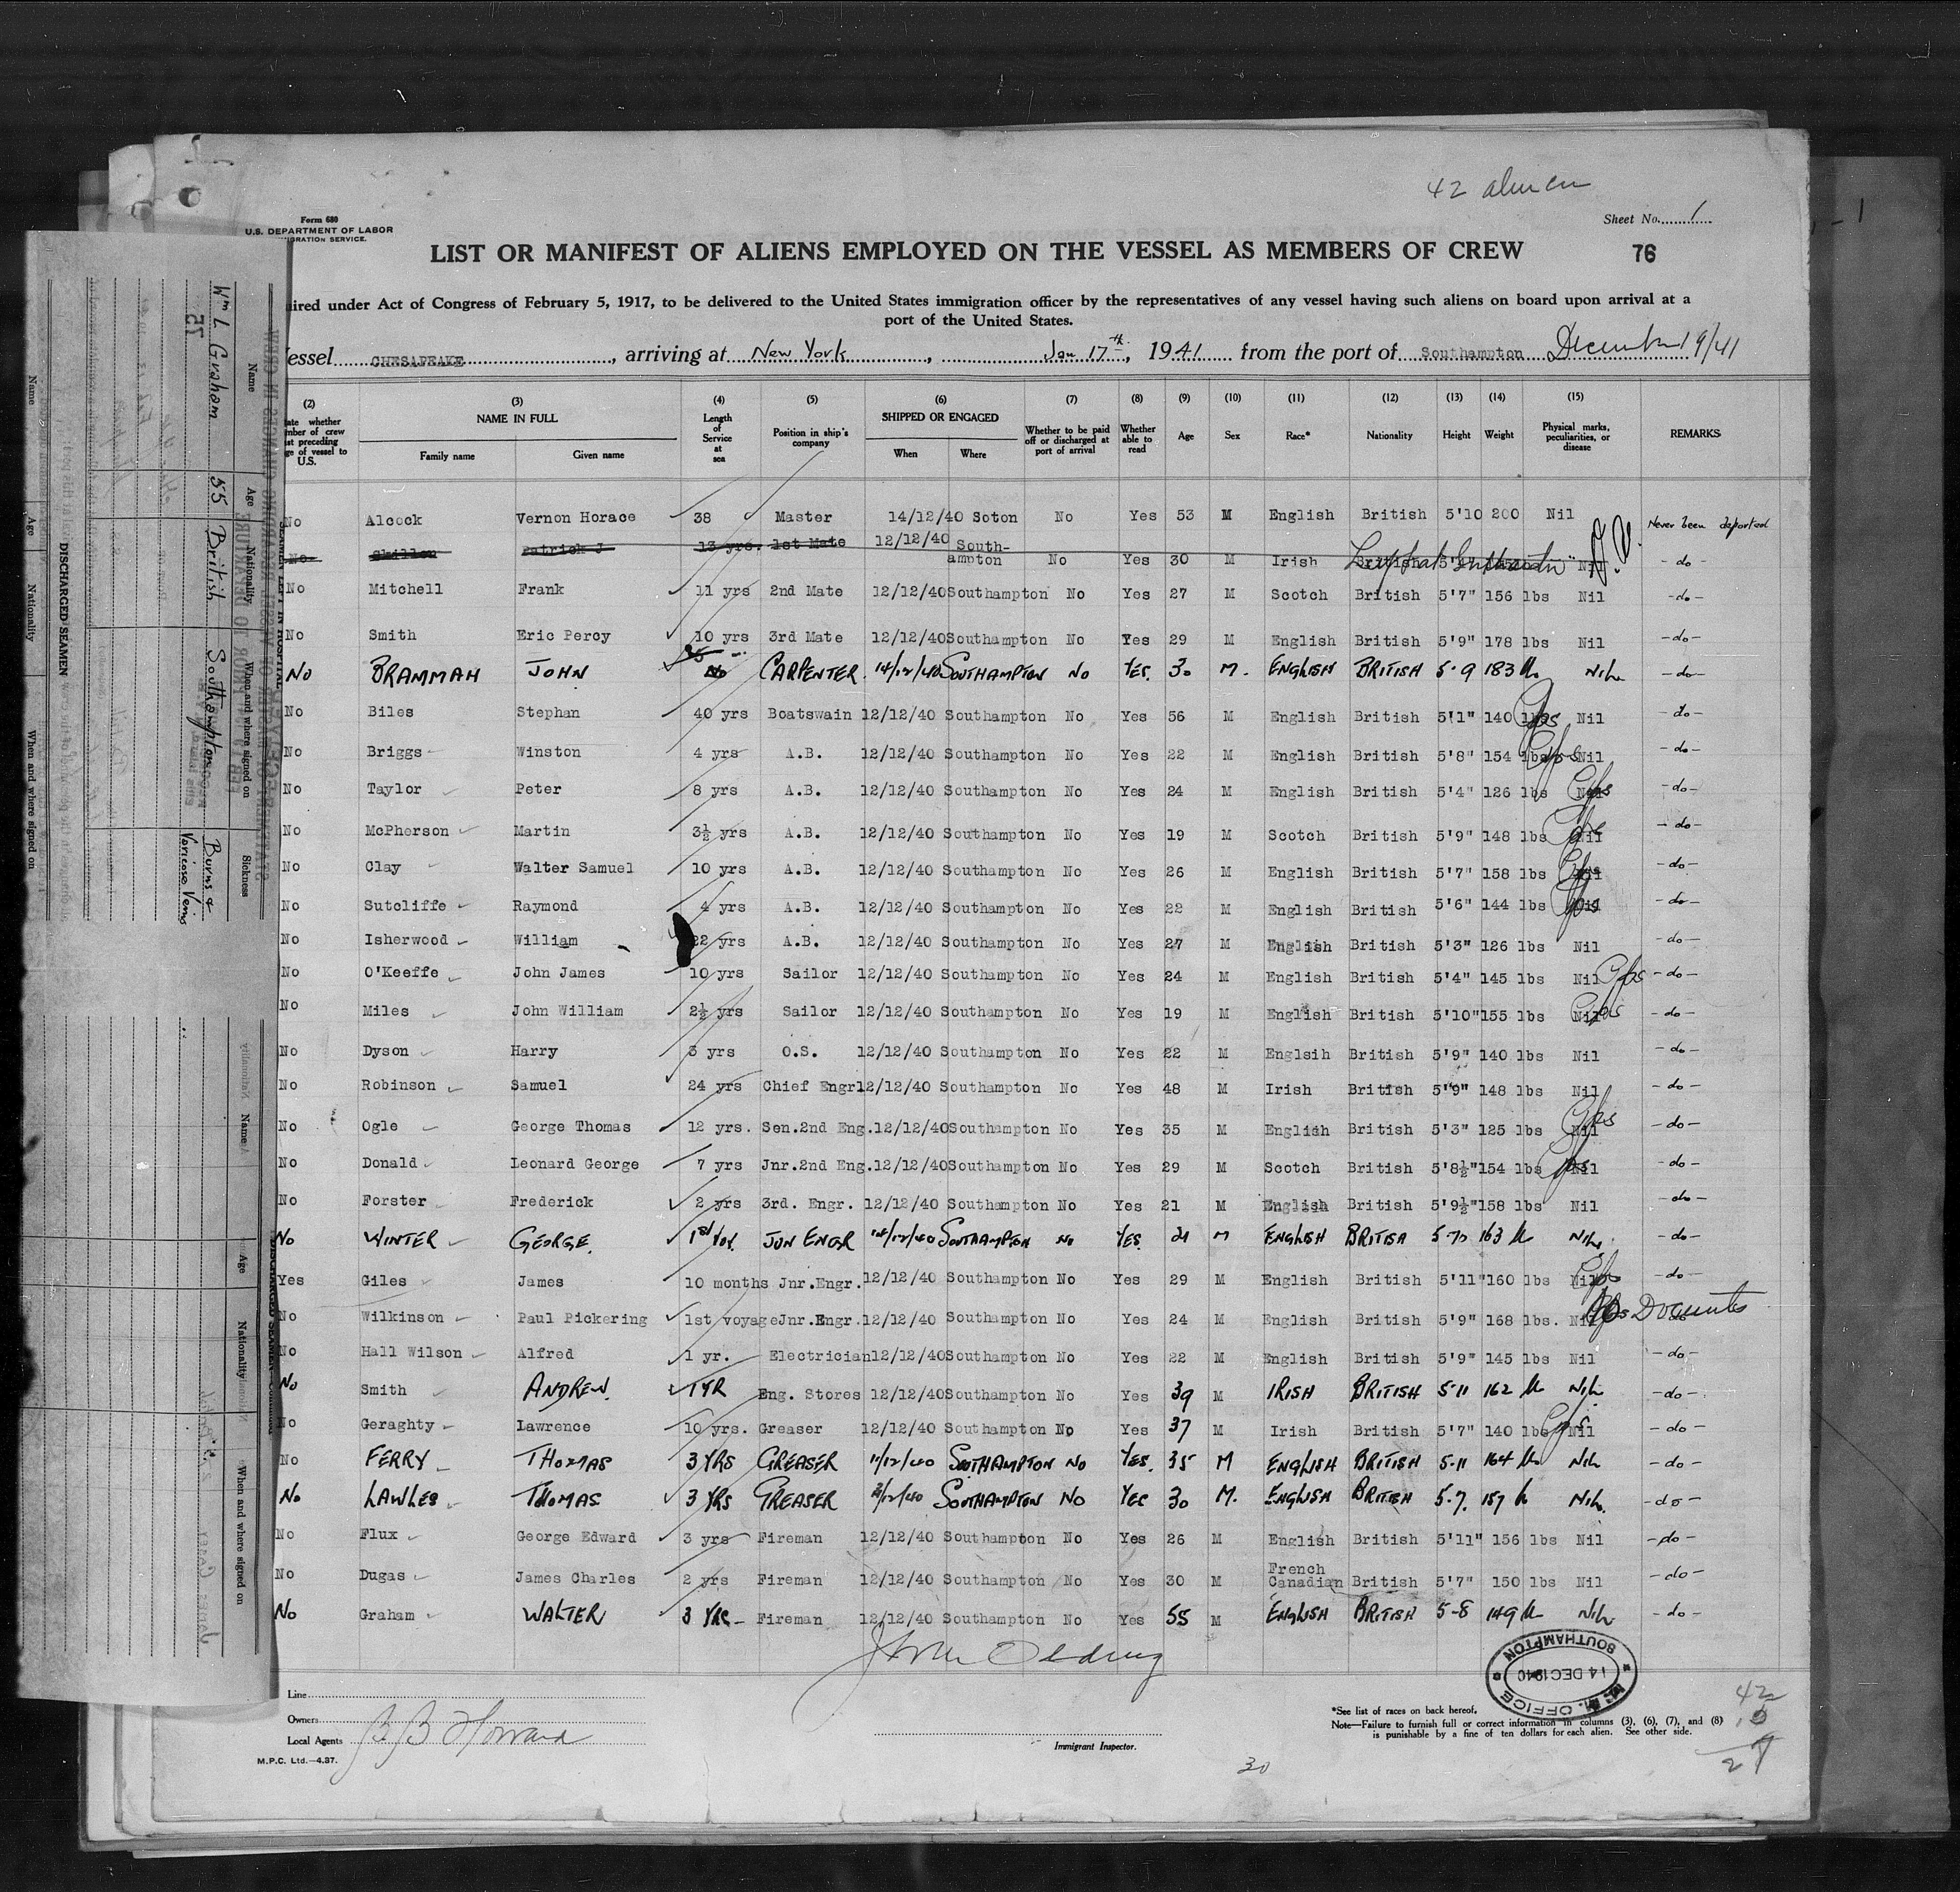 42 alien
Form 680
U.S. DEPARTMENT OF LABOR
IGRATION SERVICE.
Sheet No. 1
LIST OR MANIFEST OF ALIENS EMPLOYED ON THE VESSEL AS MEMBERS OF CREW
76
uired under Act of Congress of February 5, 1917, to be delivered to the United States immigration officer by the representatives of any vessel having such aliens on board upon arrival at a
port of the United States.
essel CHESAPEAKE, arriving at New York, Jan 17th, 1941 from the port of Southampton December 19/41
(2) (3) NAME IN FULL Family name Given name (4) Length of Service at sea (5) Position in ship's company (6) SHIPPED OR ENGAGED When Where (7) Whether to be paid off or discharged at port of arrival (8) Whether able to read (9) Age (10) Sex (11) Race* (12) Nationality (13) Height (14) Weight (15) Physical marks, peculiarities, or disease REMARKS
No Alcock Vernon Horace 38 Master 14/12/40 Soton No Yes 53 M English British 5'10 200 Nil Never been deported
No Skillen Patrick J 13 yrs. 1st Mate 12/12/40 South-ampton No Yes 30 M Irish British Nil -do-
No Mitchell Frank 11 yrs 2nd Mate 12/12/40 Southampton No Yes 27 M Scotch British 5'7" 156 lbs Nil -do-
No Smith Eric Percy 10 yrs 3rd Mate 12/12/40 Southampton No Yes 29 M English British 5'9" 178 lbs Nil -do-
No BRAMMAH JOHN CARPENTER. 14/12/40 SOUTHAMPTON No YES. 30 M. ENGLISH BRITISH 5-9 183 lb NIL -do-
No Biles Stephan 40 yrs Boatswain 12/12/40 Southampton No Yes 56 M English British 5'1" 140 lbs Nil -do-
No Briggs Winston 4 yrs A.B. 12/12/40 Southampton No Yes 22 M English British 5'8" 154 lbs Nil -do-
No Taylor Peter 8 yrs A.B. 12/12/40 Southampton No Yes 24 M English British 5'4" 126 lbs Nil -do-
No McPherson Martin 3½ yrs A.B. 12/12/40 Southampton No Yes 19 M Scotch British 5'9" 148 lbs Nil -do-
No Clay Walter Samuel 10 yrs A.B. 12/12/40 Southampton No Yes 26 M English British 5'7" 158 lbs Nil -do-
No Sutcliffe Raymond 4 yrs A.B. 12/12/40 Southampton No Yes 22 M English British 5'6" 144 lbs Nil -do-
No Isherwood William 22 yrs A.B. 12/12/40 Southampton No Yes 27 M English British 5'3" 126 lbs Nil -do-
No O'Keeffe John James 10 yrs Sailor 12/12/40 Southampton No Yes 24 M English British 5'4" 145 lbs Nil -do-
No Miles John William 2½ yrs Sailor 12/12/40 Southampton No Yes 19 M English British 5'10" 155 lbs Nil -do-
No Dyson Harry 3 yrs O.S. 12/12/40 Southampton No Yes 22 M Englsih British 5'9" 140 lbs Nil -do-
No Robinson Samuel 24 yrs Chief Engr 12/12/40 Southampton No Yes 48 M Irish British 5'9" 148 lbs Nil -do-
No Ogle George Thomas 12 yrs. Sen.2nd Eng. 12/12/40 Southampton No Yes 35 M English British 5'3" 125 lbs Nil -do-
No Donald Leonard George 7 yrs Jnr.2nd Eng. 12/12/40 Southampton No Yes 29 M Scotch British 5'8½" 154 lbs Nil -do-
No Forster Frederick 2 yrs 3rd. Engr. 12/12/40 Southampton No Yes 21 M English British 5'9½" 158 lbs Nil -do-
No WINTER GEORGE. 1st Voy. JUN ENGR 14/12/40 SOUTHAMPTON No YES. 21 M ENGLISH BRITISH 5-10 163 lb NIL. -do-
Yes Giles James 10 months Jnr.Engr. 12/12/40 Southampton No Yes 29 M English British 5'11" 160 lbs Nil -do-
No Wilkinson Paul Pickering 1st voyage Jnr.Engr. 12/12/40 Southampton No Yes 24 M English British 5'9" 168 lbs. Nil Documents
No Hall Wilson Alfred 1 yr. Electrician 12/12/40 Southampton No Yes 22 M English British 5'9" 145 lbs Nil -do-
No Smith ANDREW. 1 YR Eng. Stores 12/12/40 Southampton No Yes 39 M IRISH BRITISH 5-11 162 lb NIL -do-
No Geraghty Lawrence 10 yrs. Greaser 12/12/40 Southampton No Yes 37 M Irish British 5'7" 140 lbs Nil -do-
No FERRY THOMAS 3 YRS GREASER 11/12/40 SOUTHAMPTON No YES. 35 M ENGLISH BRITISH 5-11 164 lb NIL -do-
No LAWLES THOMAS 3 YRS GREASER SOUTHAMPTON NO YES 30 M. ENGLISH BRITISH 5-7. 157 lb NIL. -do-
No Flux George Edward 3 yrs Fireman 12/12/40 Southampton No Yes 26 M English British 5'11" 156 lbs Nil -do-
No Dugas James Charles 2 yrs Fireman 12/12/40 Southampton No Yes 30 M French Canadian British 5'7" 150 lbs Nil -do-
No Graham WALTER 3 YRS- Fireman 12/12/40 Southampton No Yes 55 M ENGLISH BRITISH 5-8 149 lb NIL -do-
Line
Owners
Local Agents B B Howard
M.P.C. Ltd.—4.37.
Immigrant Inspector.
*See list of races on back hereof.
Note—Failure to furnish full or correct information in columns (3), (6), (7), and (8)
is punishable by a fine of ten dollars for each alien. See other side.
M.M. OFFICE
14 DEC 1940
SOUTHAMPTON
30
42
DISCHARGED SEAMEN
Name Age Nationality When and where signed on Sickness
Wm L Graham 55 British Southampton Burns & Varicose Veins
Name Age Nationality When and where signed on